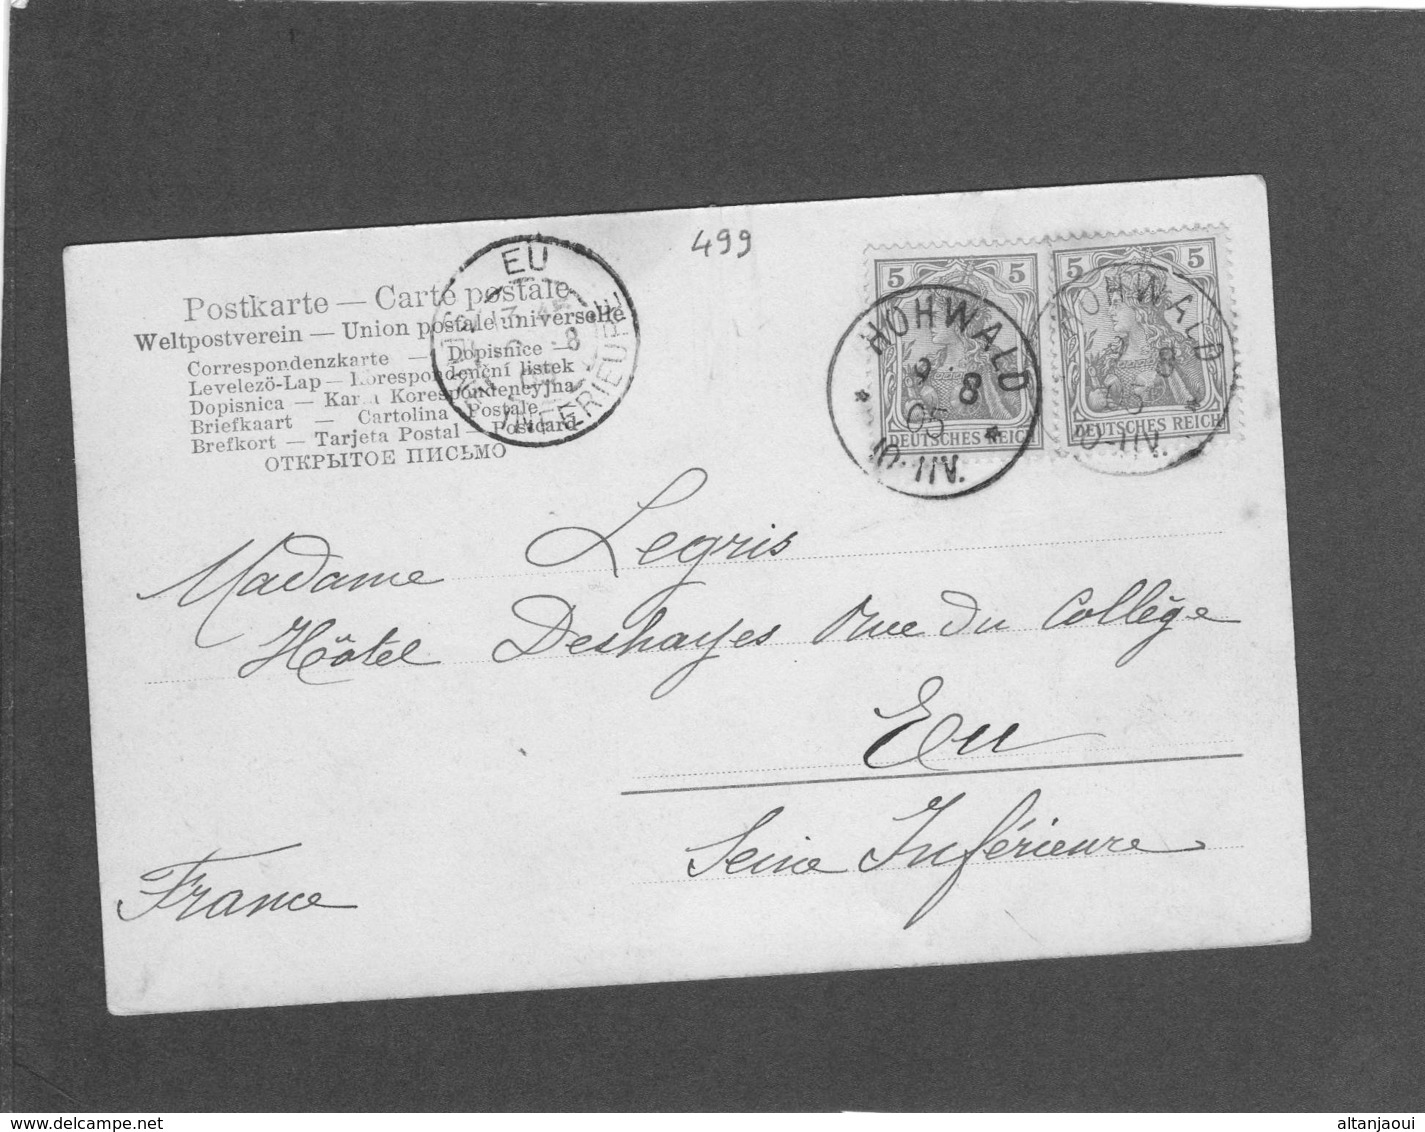 499
EU
SEINE INFERIEURE
8
Postkarte — Carte postale
Weltpostverein — Union postale universelle
Correspondenzkarte — Dopisnice —
Levelező-Lap — Korespondenční listek
Dopisnica — Karta Korespondencyjna
Briefkaart — Cartolina Postale
Brefkort — Tarjeta Postal — Postcard
ОТКРЫТОЕ ПИСЬМО
5 5
DEUTSCHES REICH
5 5
DEUTSCHES REICH
HOHWALD
9 8
05
10-11V.
HOHWALD
9 8
05
10-11V.
Madame Legris
Hôtel Deshayes Rue du Collège
Eu
Seine Inférieure
France
altanjaoui